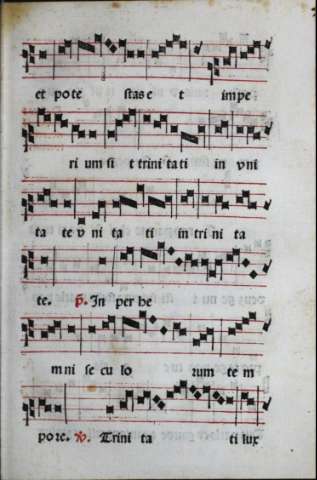 et pote stas e t impe
ri um si t trini ta ti in vni
ta te v ni ta ti in tri ni ta
te. In per he
mni se cu lo rum te m
pore. Trini ta ti lux